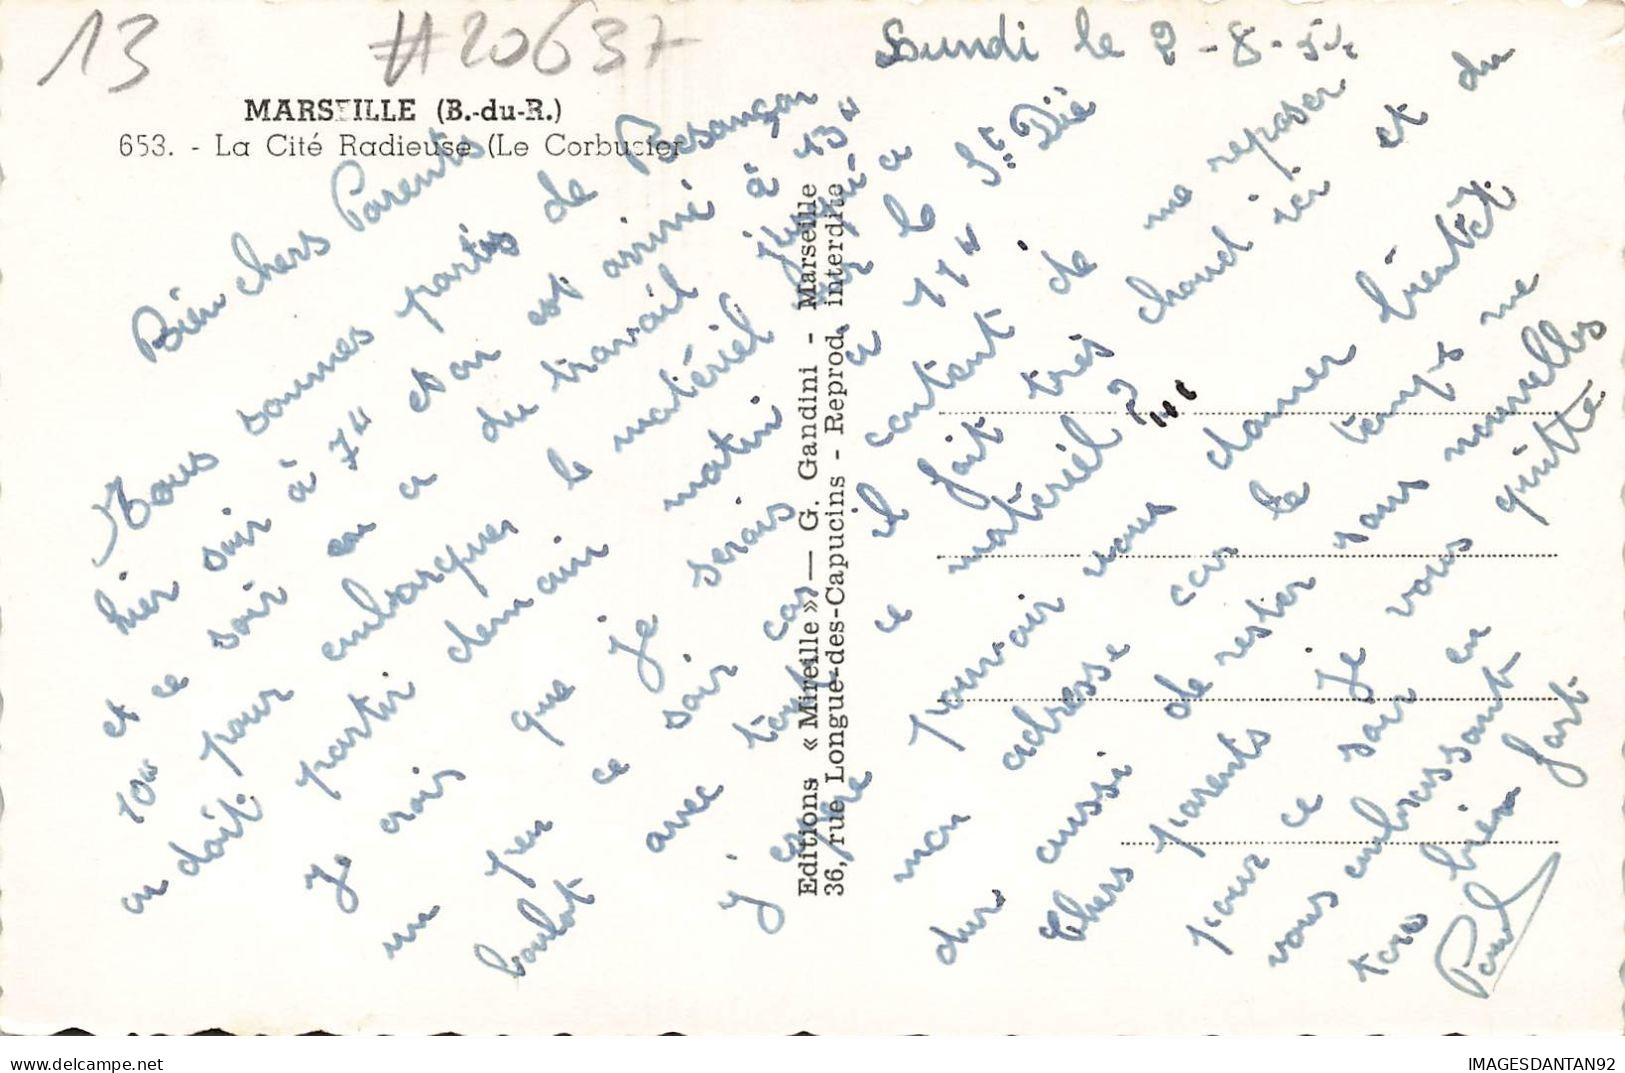 13 #20637
MARSEILLE (B.-du-R.)
653. - La Cité Radieuse (Le Corbusier
Lundi le 2-8-54
Bien chers Parents
Nous sommes partis de Besançon
hier soir à 7" et on est arrivé à 13"
et ce soir on a du travail jusqu'à
10" pour embarquer le matériel car
on doit partir demain matin a 11"
Je crois que je serais
un peu ce soir
boulot avec tout
j'espère
le St. Dié
content de me reposer
il fait très chaud ici et du
ce matériel ?...
pouvoir vous donner bientôt
mon adresse car le temps me
dur aussi de rester sans nouvelles
Chers parents Je vous quitte
pour ce soir en
vous embrassant
tous bien fort
Paul
Editions « Mireille » — G. Gandini - Marseille
36, rue Longue-des-Capucins - Reprod. interdite
IMAGESDANTAN92